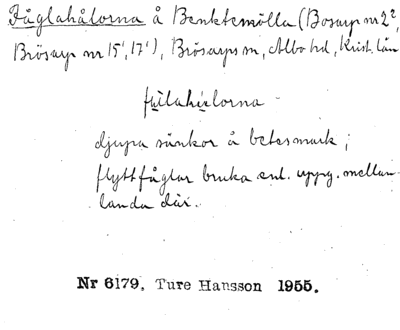 Fåglahålorna å Benktemölla (Bosarp nr 2²,
Brösarp nr 15¹, 17¹), Brösarps sn, Albo hd, Krist. län
djupa sänkor å betesmark;
flyttfåglar bruka enl. uppg. mellan-
landa där.
Nr 6179. Ture Hansson 1955.